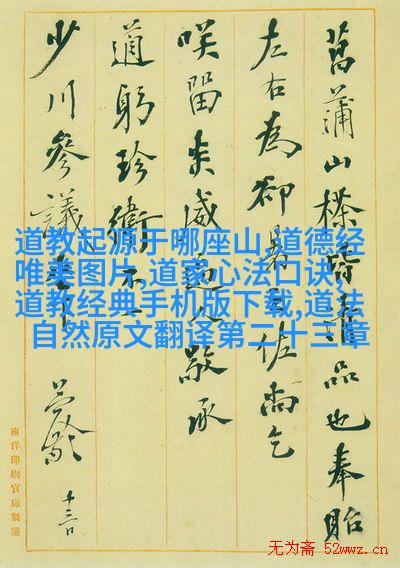 菖蒲山茶皆品也奉貽
左右為卻暑佐尚乞
哂留盛敬承
道躬珍衛不
少川參議
十三日
南洋印刷官廠製箋
道教起源于哪座山,道德经
唯美图片,道家心法口诀,
道教经典手机版下载,道法
自然原文翻译第二十三章
无为斋 52wwz.cn